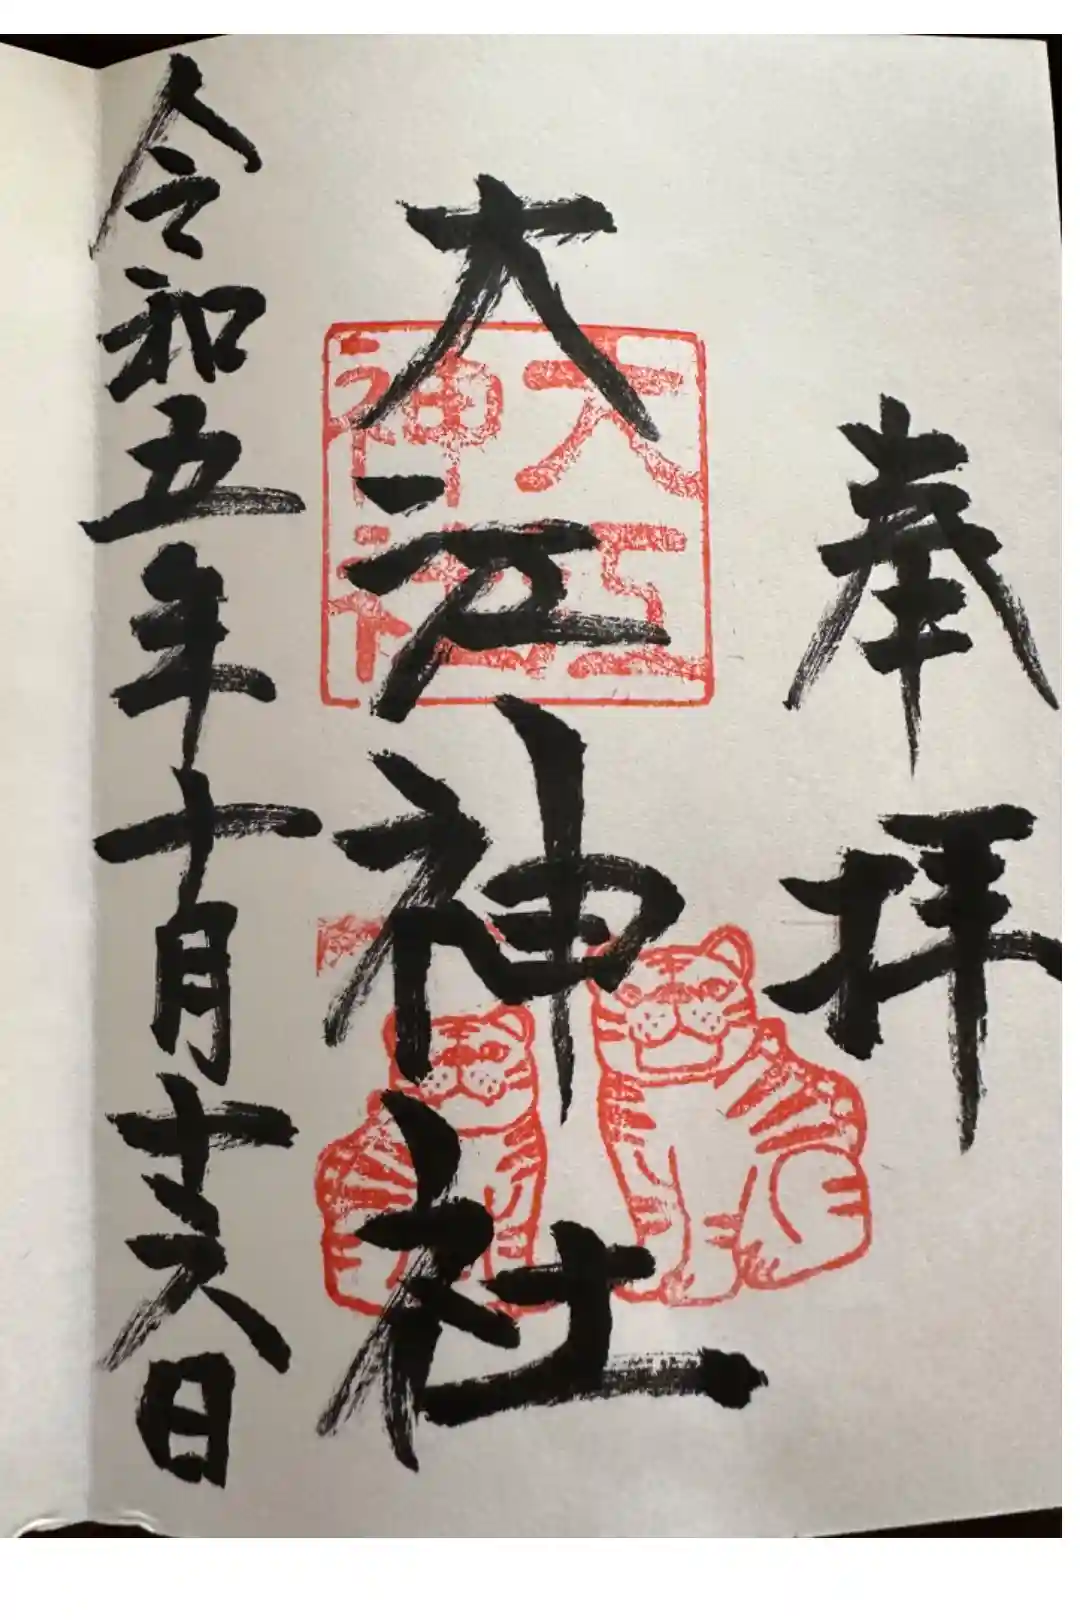 奉拝
大江神社
令和五年十月十六日
大江
神社